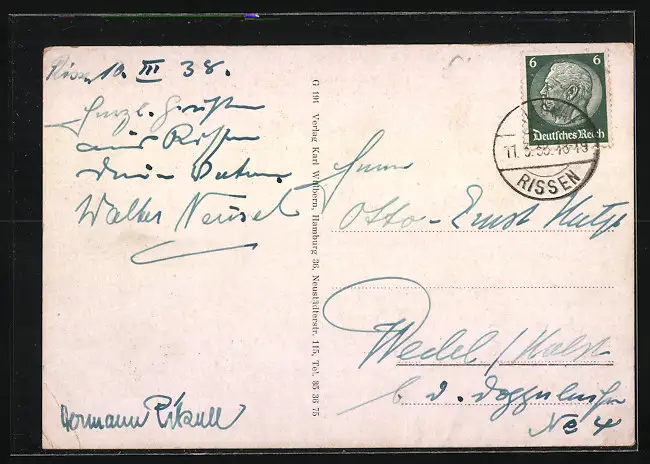 Rissen 10. III 38.
Herzl. Grüße
aus Rissen
Dein Vater.
Walter Neusel
Hermann
G 194 Verlag Karl Wilbern, Hamburg 36, Neustädterstr. 115, Tel. 35 36 75
6 6
Deutsches Reich
11.3.38.18-19
RISSEN
Herrn
Otto-Ernst
Wedel/Holst
b. d.
No 4